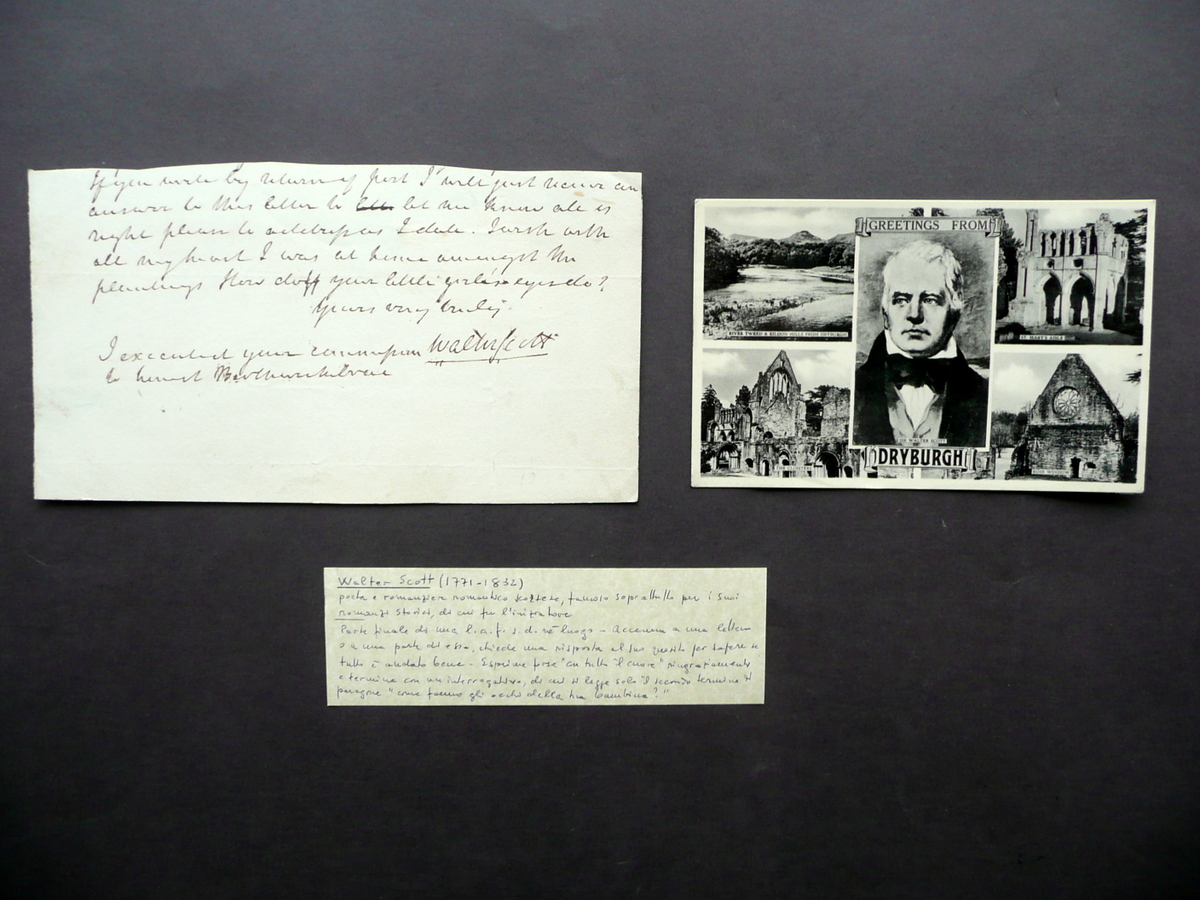 If you write by return of post I will just receive an
answer to this letter to let me know all is
right please to address as I date. I wish with
all my heart I was at home amongst the
plantings How do your little girl's eyes do?
Yours very truly
I executed your commission Walter Scott
to honest
GREETINGS FROM
RIVER TWEED & EILDON HILLS FROM DRYBURGH
ST. MARY'S AISLE
SIR WALTER SCOTT
DRYBURGH
Walter Scott (1771-1832)
poeta e romanziere romantico scozzese, famoso soprattutto per i suoi
romanzi storici, di cui fu l'iniziatore
Parte finale di una l.a.f. s.d. nè luogo - Accenna a una lettera
o a una parte di essa, chiede una risposta al suo quesito per sapere se
tutto è andato bene. Esprime forse "con tutto il cuore" ringraziamento
e termina con un interrogativo, di cui si legge solo il secondo termine di
paragone "come fanno gli occhi della tua bambina?"